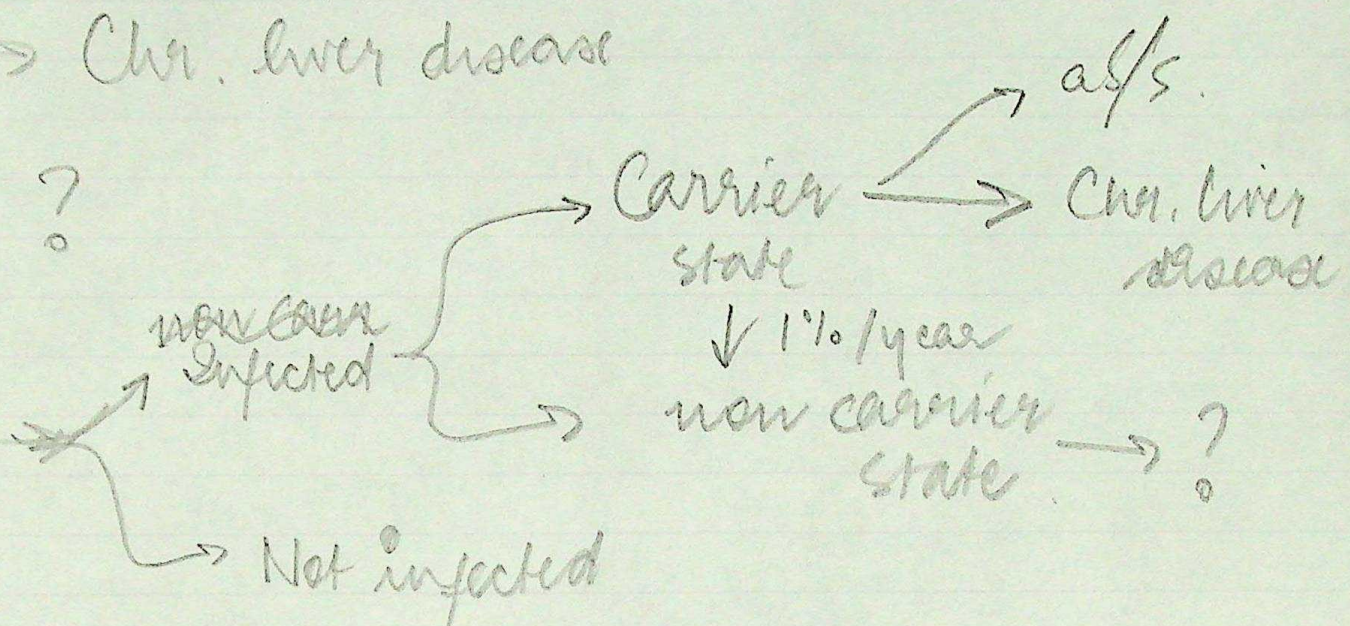 > Chr. liver disease
as/s.
?
Carrier
state
Chr. liver
disease
Infected
↓ 1% / year
non carrier
state
?
Not infected